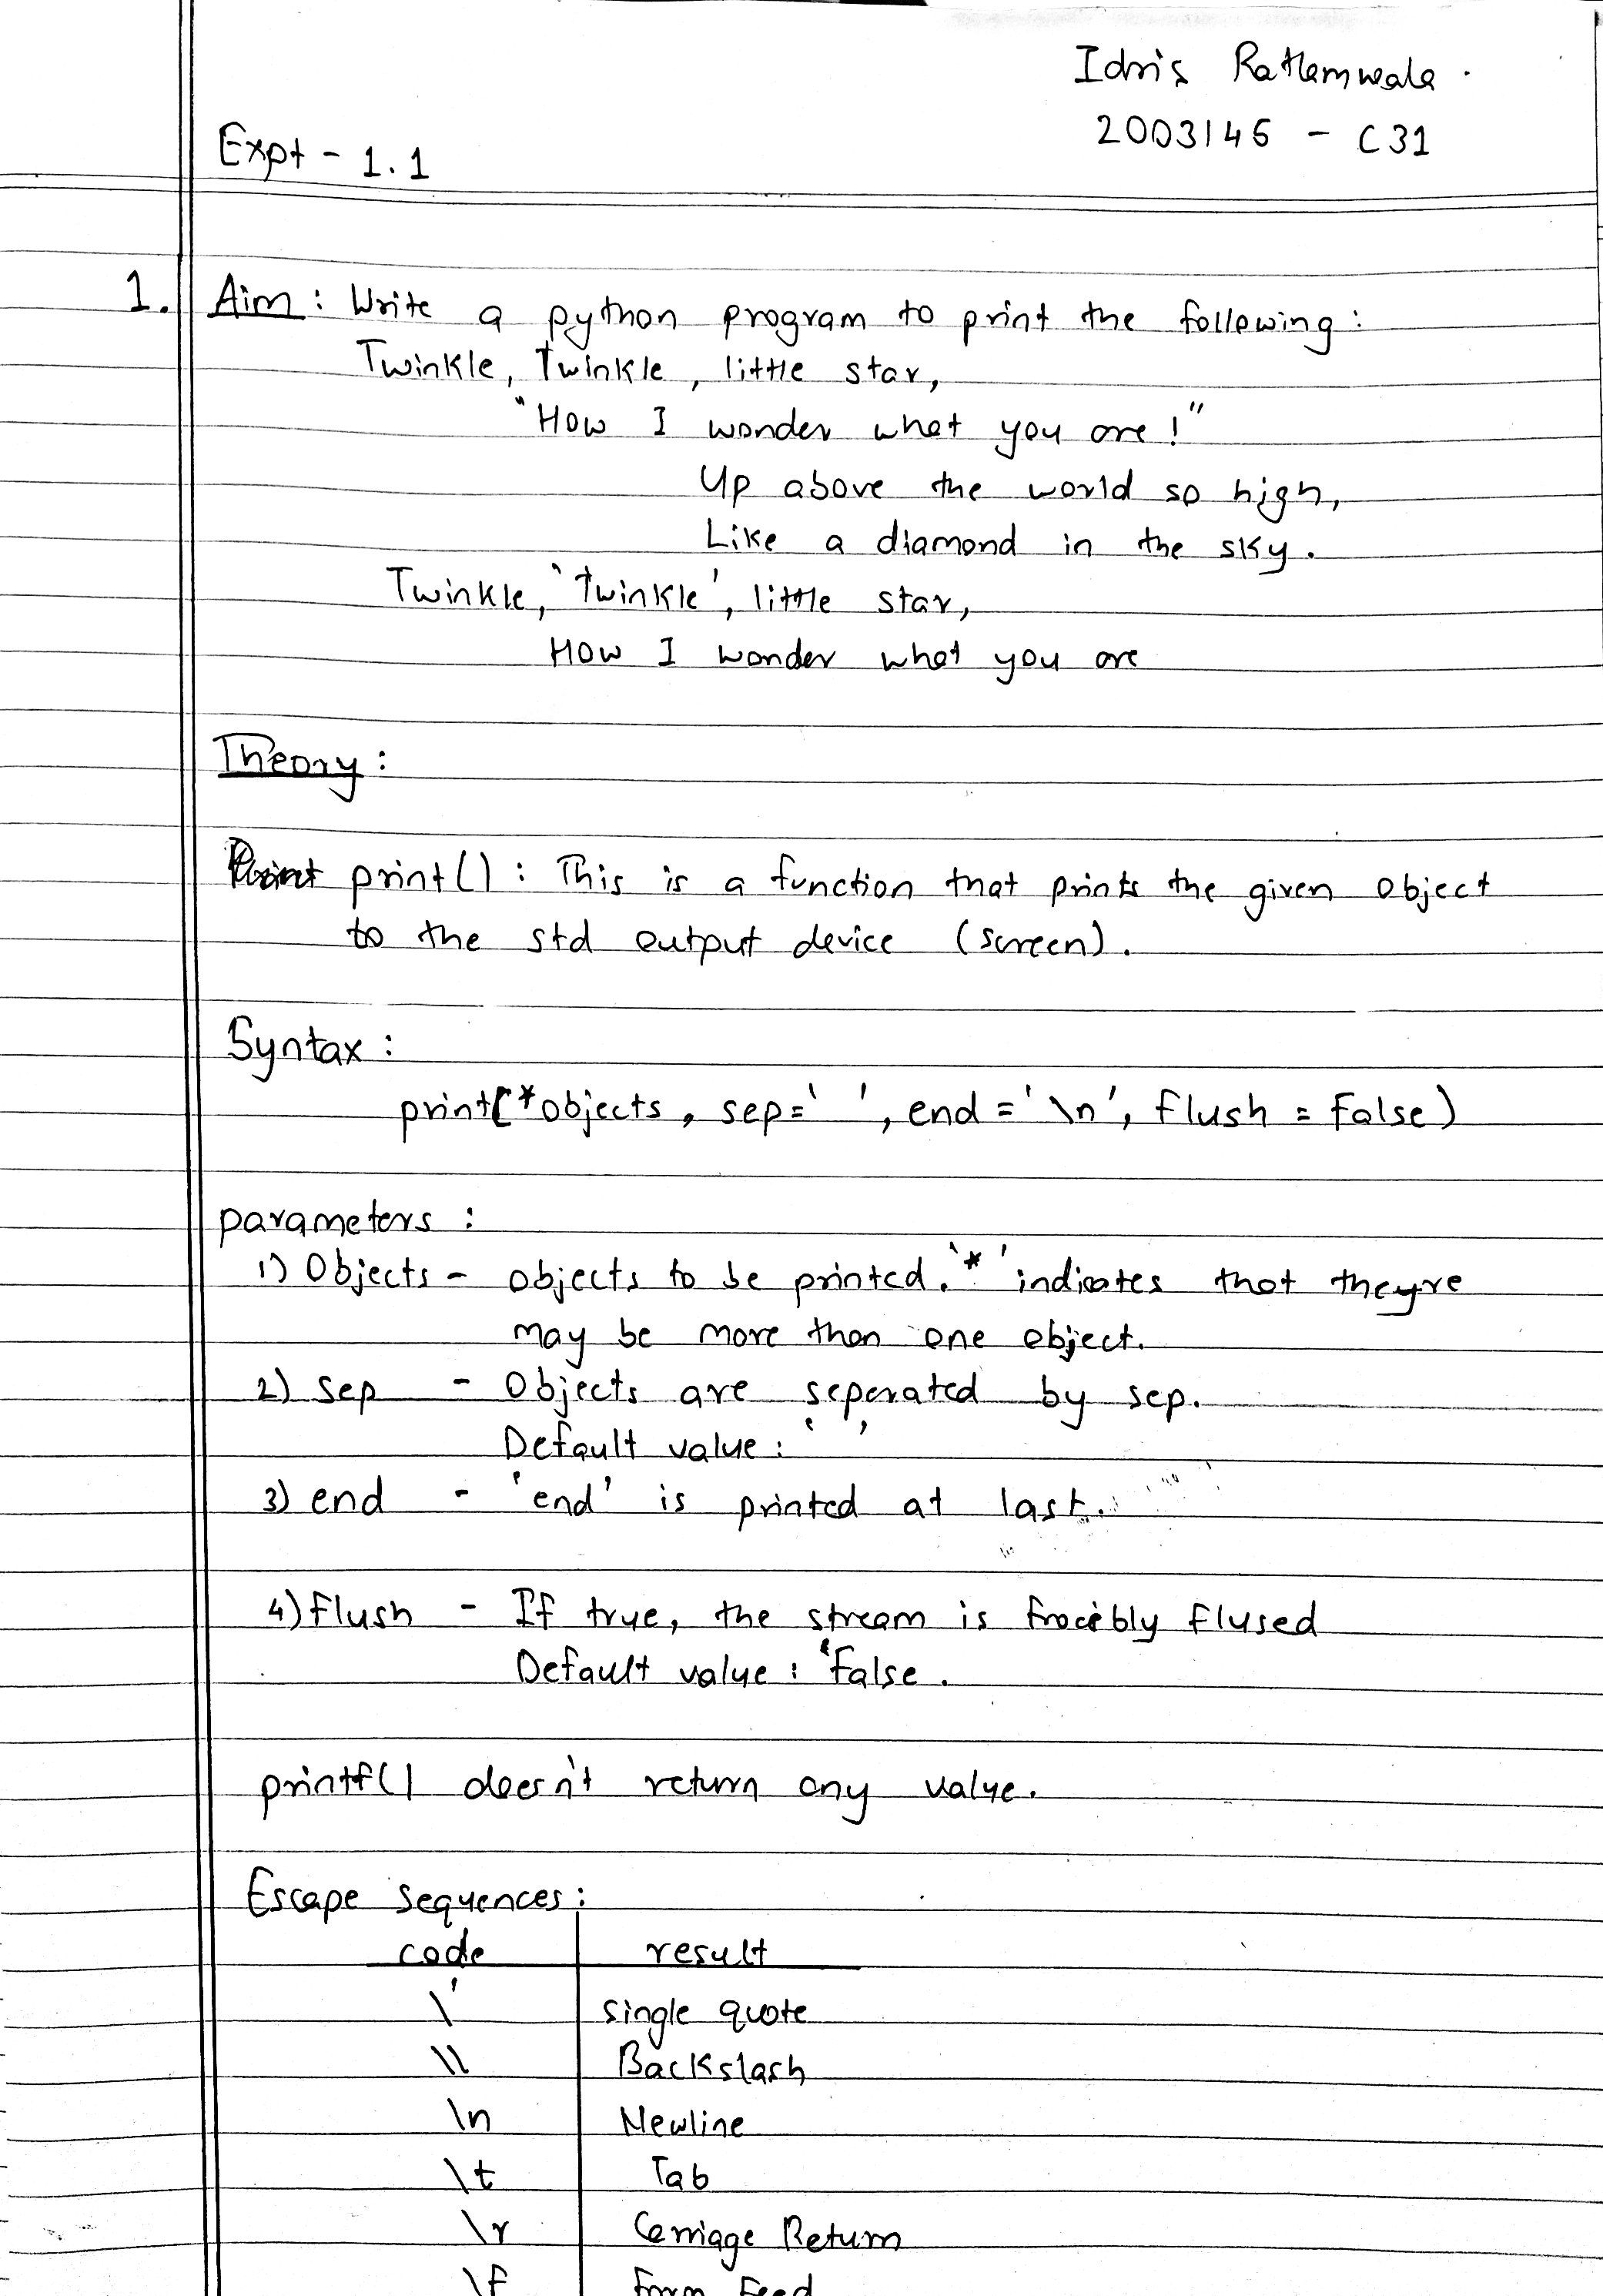 Idris Ratlamwala.
2003145 - C31
Expt - 1.1
1. Aim : Write a python program to print the following :
Twinkle, Twinkle, little star,
"How I wonder what you are!"
Up above the world so high,
Like a diamond in the sky.
Twinkle, 'twinkle', little star,
How I wonder what you are
Theory :
print() : This is a function that prints the given object
to the std output device (screen).
Syntax :
print(*objects, sep=' ', end='\n', flush = False)
parameters :
1) Objects - objects to be printed. '*' indicates that theyre
may be more than one object.
2) sep - Objects are seperated by sep.
Default value : ' '
3) end - 'end' is printed at last.
4) flush - If true, the stream is frocibly flused
Default value : 'False.
printf() doesn't return any value.
Escape sequences :
code result
\' single quote
\\ Backslash
\n Newline
\t Tab
\r Carriage Return
\f Form Feed